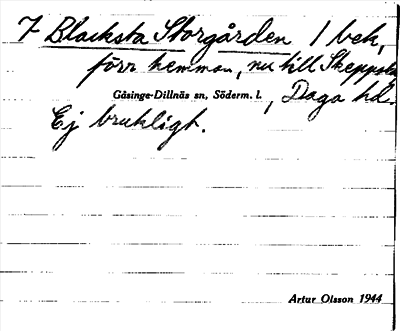 7 Blacksta Storgården 1 bek,
förr hemman, nu till Skeppsta
Gåsinge-Dillnäs sn, Söderm. l. , Daga hd.
Ej brukligt.
Artur Olsson 1944